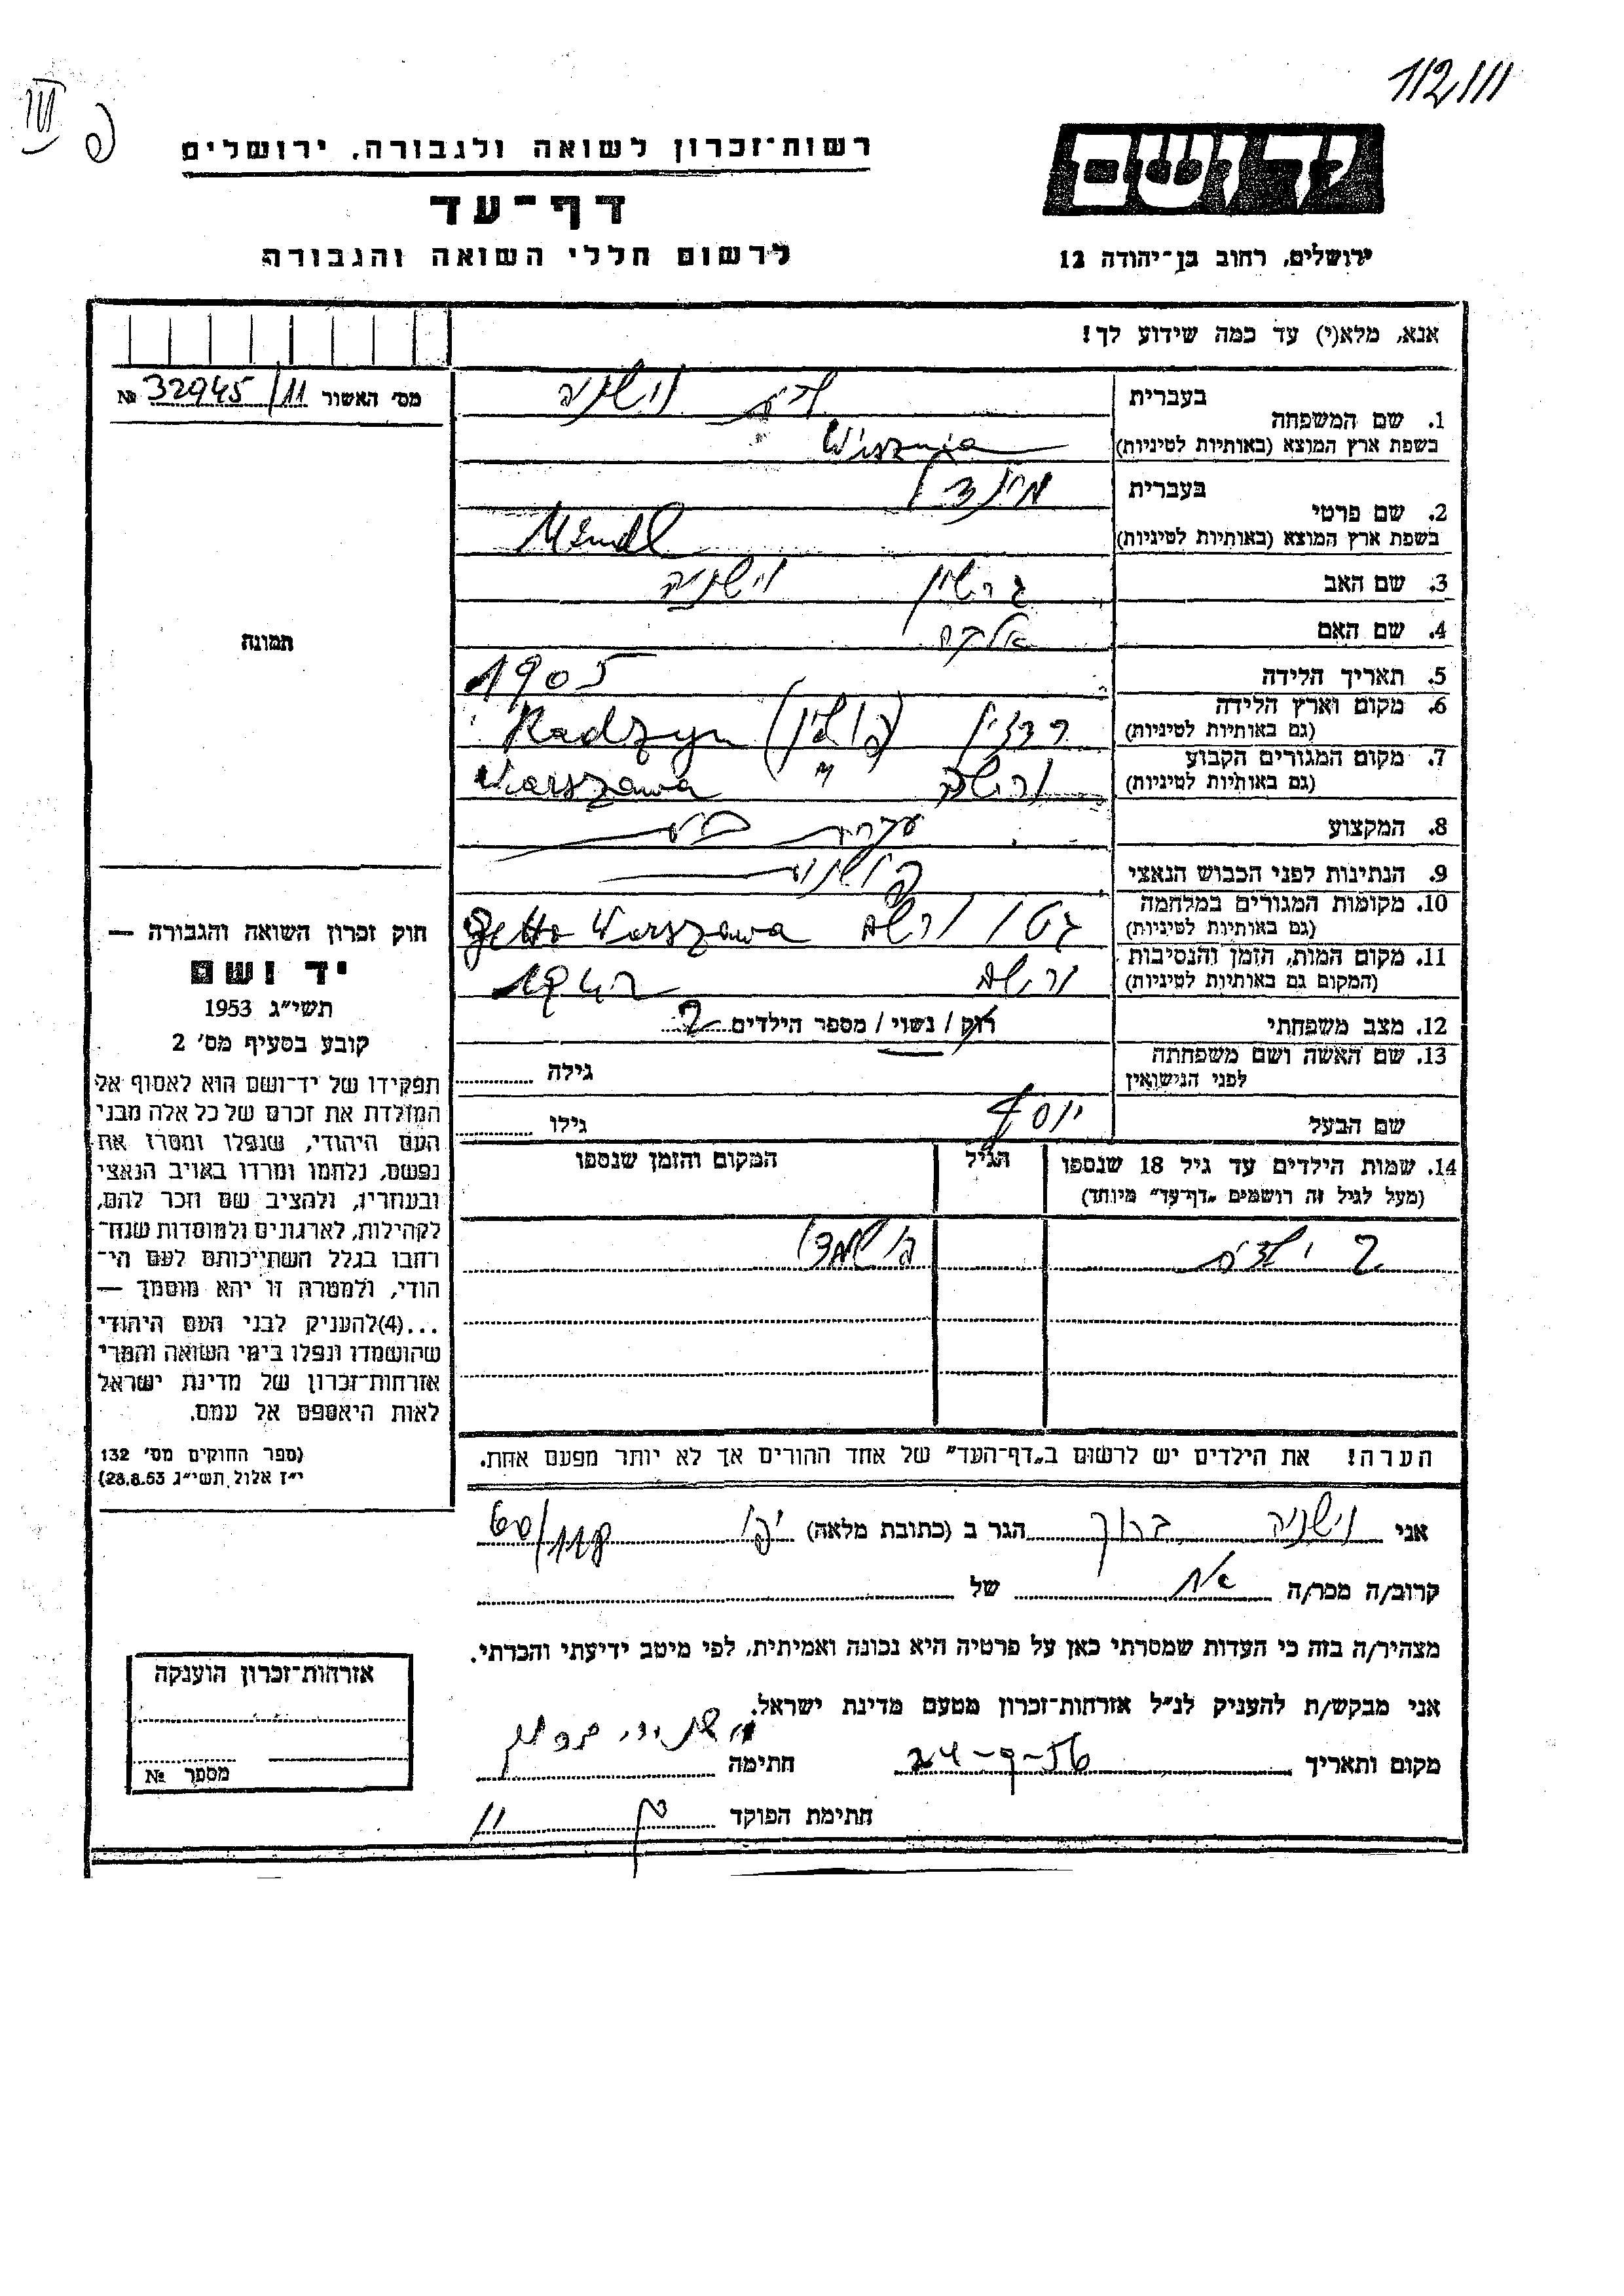 112/11
VII
פ
ידושם
ירושלים, רחוב בן־יהודה 12
רשות־זכרון לשואה ולגבורה, ירושלים
דף־עד
לרשום חללי השואה והגבורה
אנא, מלא(י) עד כמה שידוע לך!
מס׳ האשור № 32945/11
תמונה
חוק זכרון השואה והגבורה —
יד ושם
תשי״ג 1953
קובע בסעיף מס׳ 2
תפקידו של יד־ושם הוא לאסוף אל
המולדת את זכרם של כל אלה מבני
העם היהודי, שנפלו ומסרו את
נפשם, נלחמו ומרדו באויב הנאצי
ובעוזריו, ולהציב שם וזכר להם,
לקהילות, לארגונים ולמוסדות שנח־
רחבו בגלל השתייכותם לעם הי־
הודי, ולמטרה זו יהא מוסמך —
...(4)להעניק לבני העם היהודי
שהושמדו ונפלו בימי השואה והמרי
אזרחות־זכרון של מדינת ישראל
לאות היאספם אל עמם.
(ספר החוקים מס׳ 132
י״ז אלול תשי״ג 28.8.53)
1. שם המשפחה בעברית וישניה
בשפת ארץ המוצא (באותיות לטיניות) Wisznia
2. שם פרטי בעברית מינדל
בשפת ארץ המוצא (באותיות לטיניות) Mendl
3. שם האב גרשון וישניה
4. שם האם
5. תאריך הלידה 1905
6. מקום וארץ הלידה (גם באותיות לטיניות) רדזין (פולין) Radzyn
7. מקום המגורים הקבוע (גם באותיות לטיניות) ורשה Warszawa
8. המקצוע עקרת בית
9. הנתינות לפני הכבוש הנאצי פולשנית
10. מקומות המגורים במלחמה (גם באותיות לטיניות) גטו ורשה Getto Warszawa
11. מקום המות, הזמן והנסיבות (המקום גם באותיות לטיניות) ורשה 1942
12. מצב משפחתי רוק / נשוי / מספר הילדים 2
13. שם האשה ושם משפחתה לפני הנישואין גילה
שם הבעל יוסף גילו
14. שמות הילדים עד גיל 18 שנספו הגיל המקום והזמן שנספו
(מעל לגיל זה רושמים „דף־עד״ מיוחד)
2 ילדים הושמדו
הערה! את הילדים יש לרשום ב„דף־העד״ של אחד ההורים אך לא יותר מפעם אחת.
אני וישניה ברוך הגר ב (כתובת מלאה) יפו 60/118
קרוב/ה מכר/ה אח של
מצהיר/ה בזה כי העדות שמסרתי כאן על פרטיה היא נכונה ואמיתית, לפי מיטב ידיעתי והכרתי.
אני מבקש/ת להעניק לנ״ל אזרחות־זכרון מטעם מדינת ישראל.
מקום ותאריך 24-9-56 חתימה
חתימת הפוקד 11
אזרחות־זכרון הוענקה
מספר №